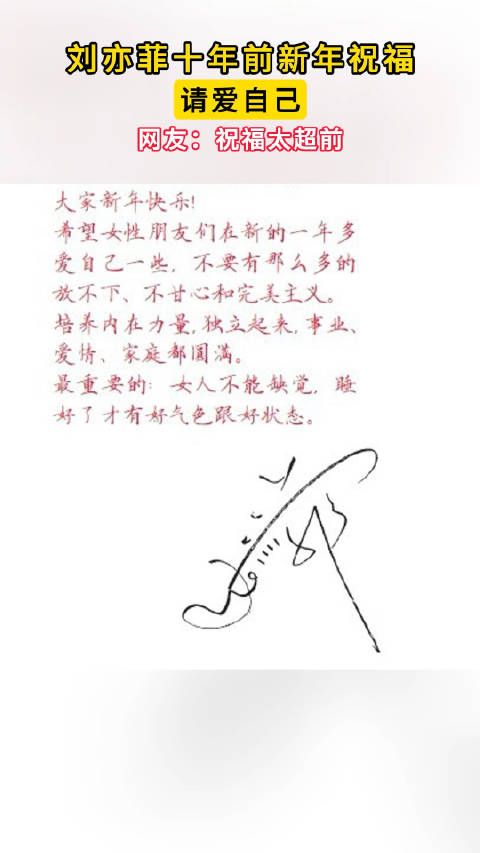 刘亦菲十年前新年祝福
请爱自己
网友：祝福太超前
大家新年快乐!
希望女性朋友们在新的一年多
爱自己一些，不要有那么多的
放不下、不甘心和完美主义。
培养内在力量,独立起来,事业、
爱情、家庭都圆满。
最重要的：女人不能缺觉，睡
好了才有好气色跟好状态。